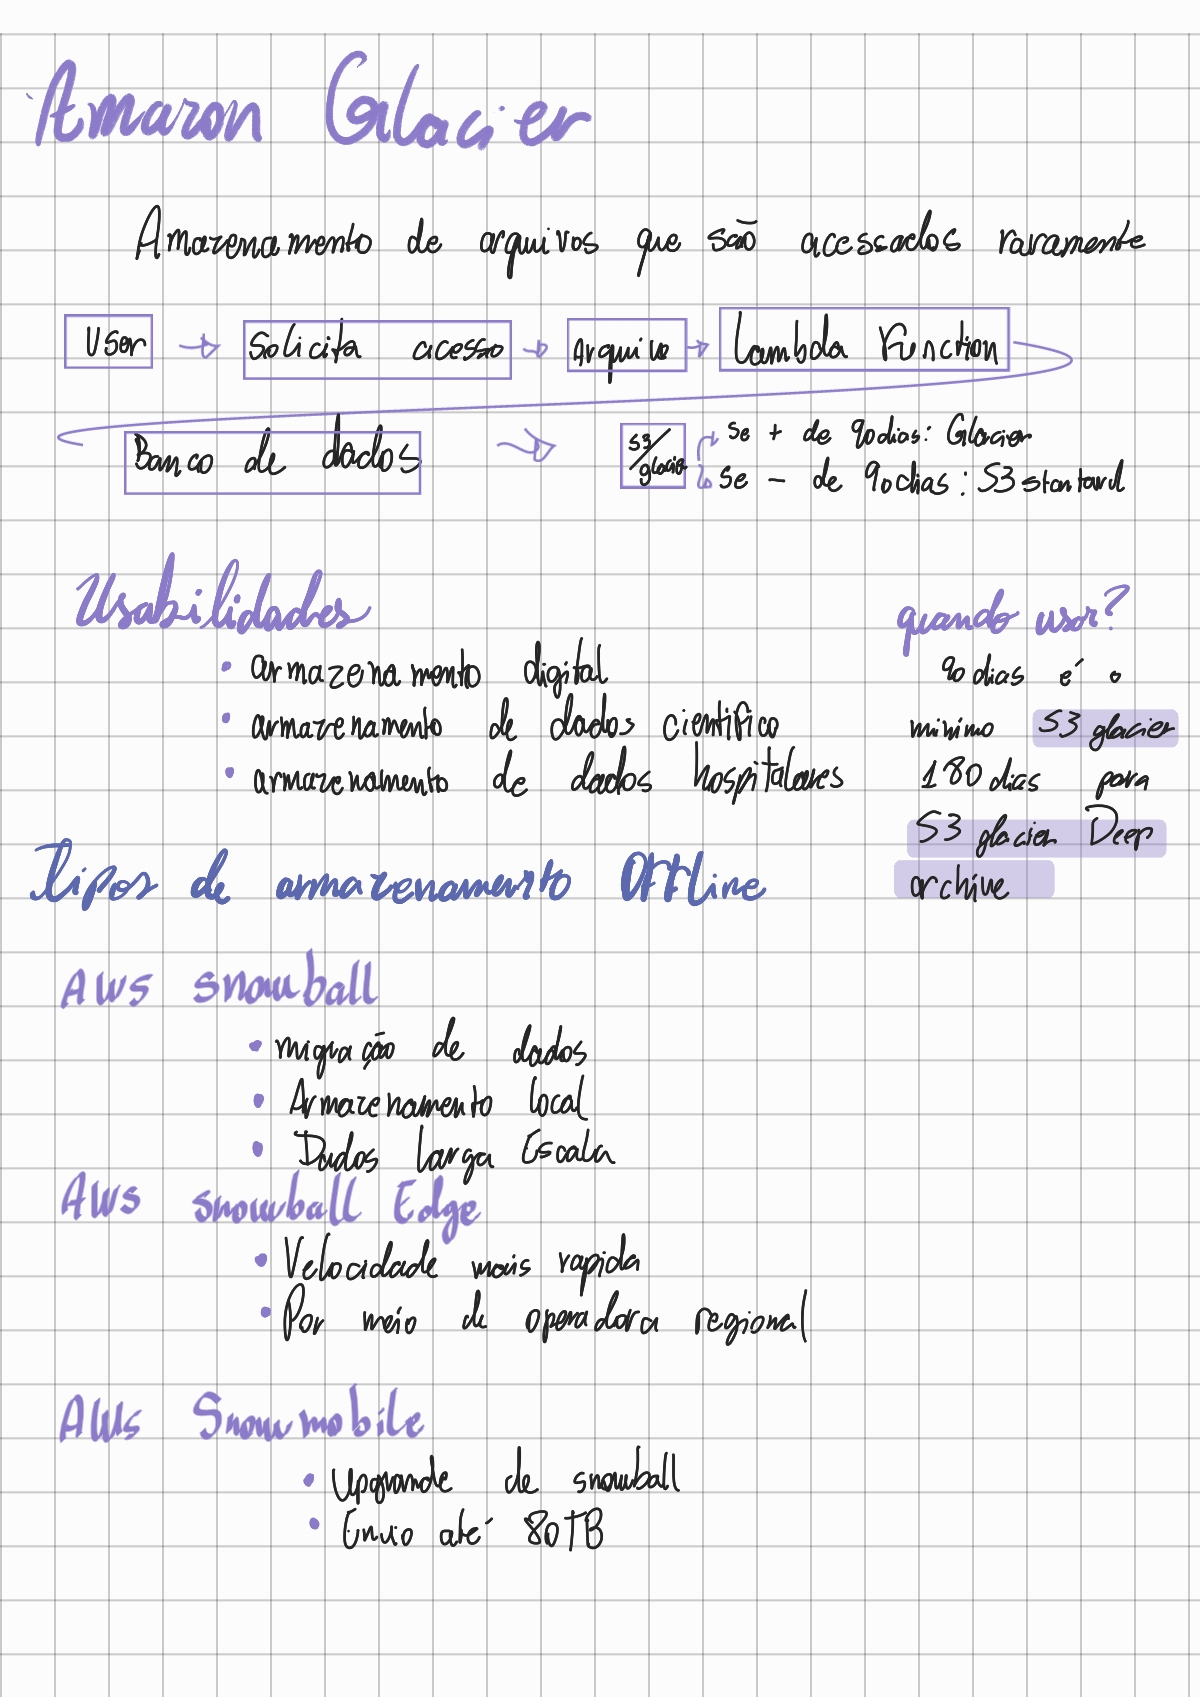 Amazon Glacier
Amazenamento de arquivos que são acessados raramente
User Solicita acesso Arquivo Lambda Function
Banco de dados S3/glacier
se + de 90 dias: Glacier
se - de 90 dias: S3 standard
Usabilidades
• armazenamento digital
• armazenamento de dados cientifico
• armazenamento de dados hospitalares
quando usar?
90 dias é o
minimo S3 glacier
180 dias para
S3 glacier Deep
archive
Tipos de armazenamento Offline
Aws snowball
• migração de dados
• Armazenamento local
• Dados Larga Escala
Aws snowball Edge
• Velocidade mais rapida
• Por meio de operadora regional
Aws Snowmobile
• Upgrande de snowball
• Envio até 80TB